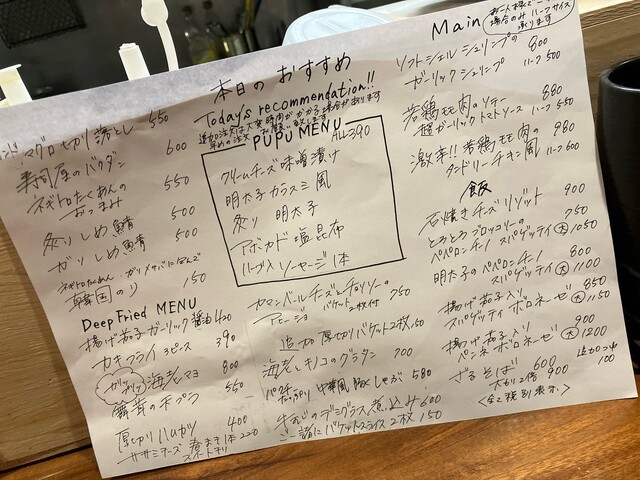 本日のおすすめ
Today's recommendation!!
追加注文は大変時間がかかる場合があります
早めの注文お願い致します
マグロ切り落とし 550
寿司屋のバクダン 600
ネギトロたくあんの
おつまみ 550
炙りしめ鯖 500
ガリしめ鯖 500
ネギトロたくあん、ガリサバにはさんで
韓国のり 150
Deep Fried MENU
揚げ茄子ガーリック醤油 420
カキフライ 3ピース 390
海老マヨ 800
舞茸の天プラ 550
厚切りハムカツ 400
ササミチーズ
PUPU MENU ALL390
クリームチーズ味噌漬け
明太子カラスミ風
炙り 明太子
アボカド塩昆布
ハーブ入ソーセージ1本
カマンベールチーズとチョリソーの
アヒージョ バケット2枚付 750
追加 厚切りバケット2枚 150
海老とキノコのグラタン 700
パクチーどっさり 中華風豚しゃぶ 580
牛すじのデミグラス煮込み 600
ご一緒にバケットスライス2枚 150
Main
お一人様でご
場合のみハーフサイズ
承ります
ソフトシェルシュリンプの 800
ガーリックシュリンプ ハーフ500
若鶏モモ肉のソテー 880
超ガーリックトマトソース ハーフ550
激辛!!若鶏モモ肉の 980
タンドリーチキン風 ハーフ600
飯
石焼きチーズリゾット 900
とろとろブロッコリーの 750
ペペロンチーノ スパゲッティ 大1050
明太子のペペロンチーノ 800
スパゲッティ 大1100
揚げ茄子入り 850
スパゲッティ ボロネーゼ 大1150
揚げ茄子入り 900
ペンネ ボロネーゼ 大1200
ざるそば 600 追加つゆ
大もり2倍 900 100
<全て税別表示>